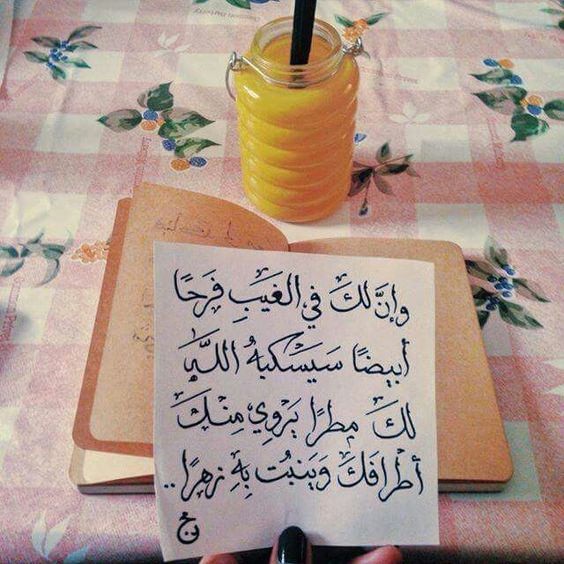 وإنَّ لكَ في الغيَبِ فَرحًا
أبيضًا سَيسكبهُ اللَّهِ
لكَ مطرًا يَروِي مِنكَ
أطرافكَ وَيَنبُت بِهِ زهرًا..
ج